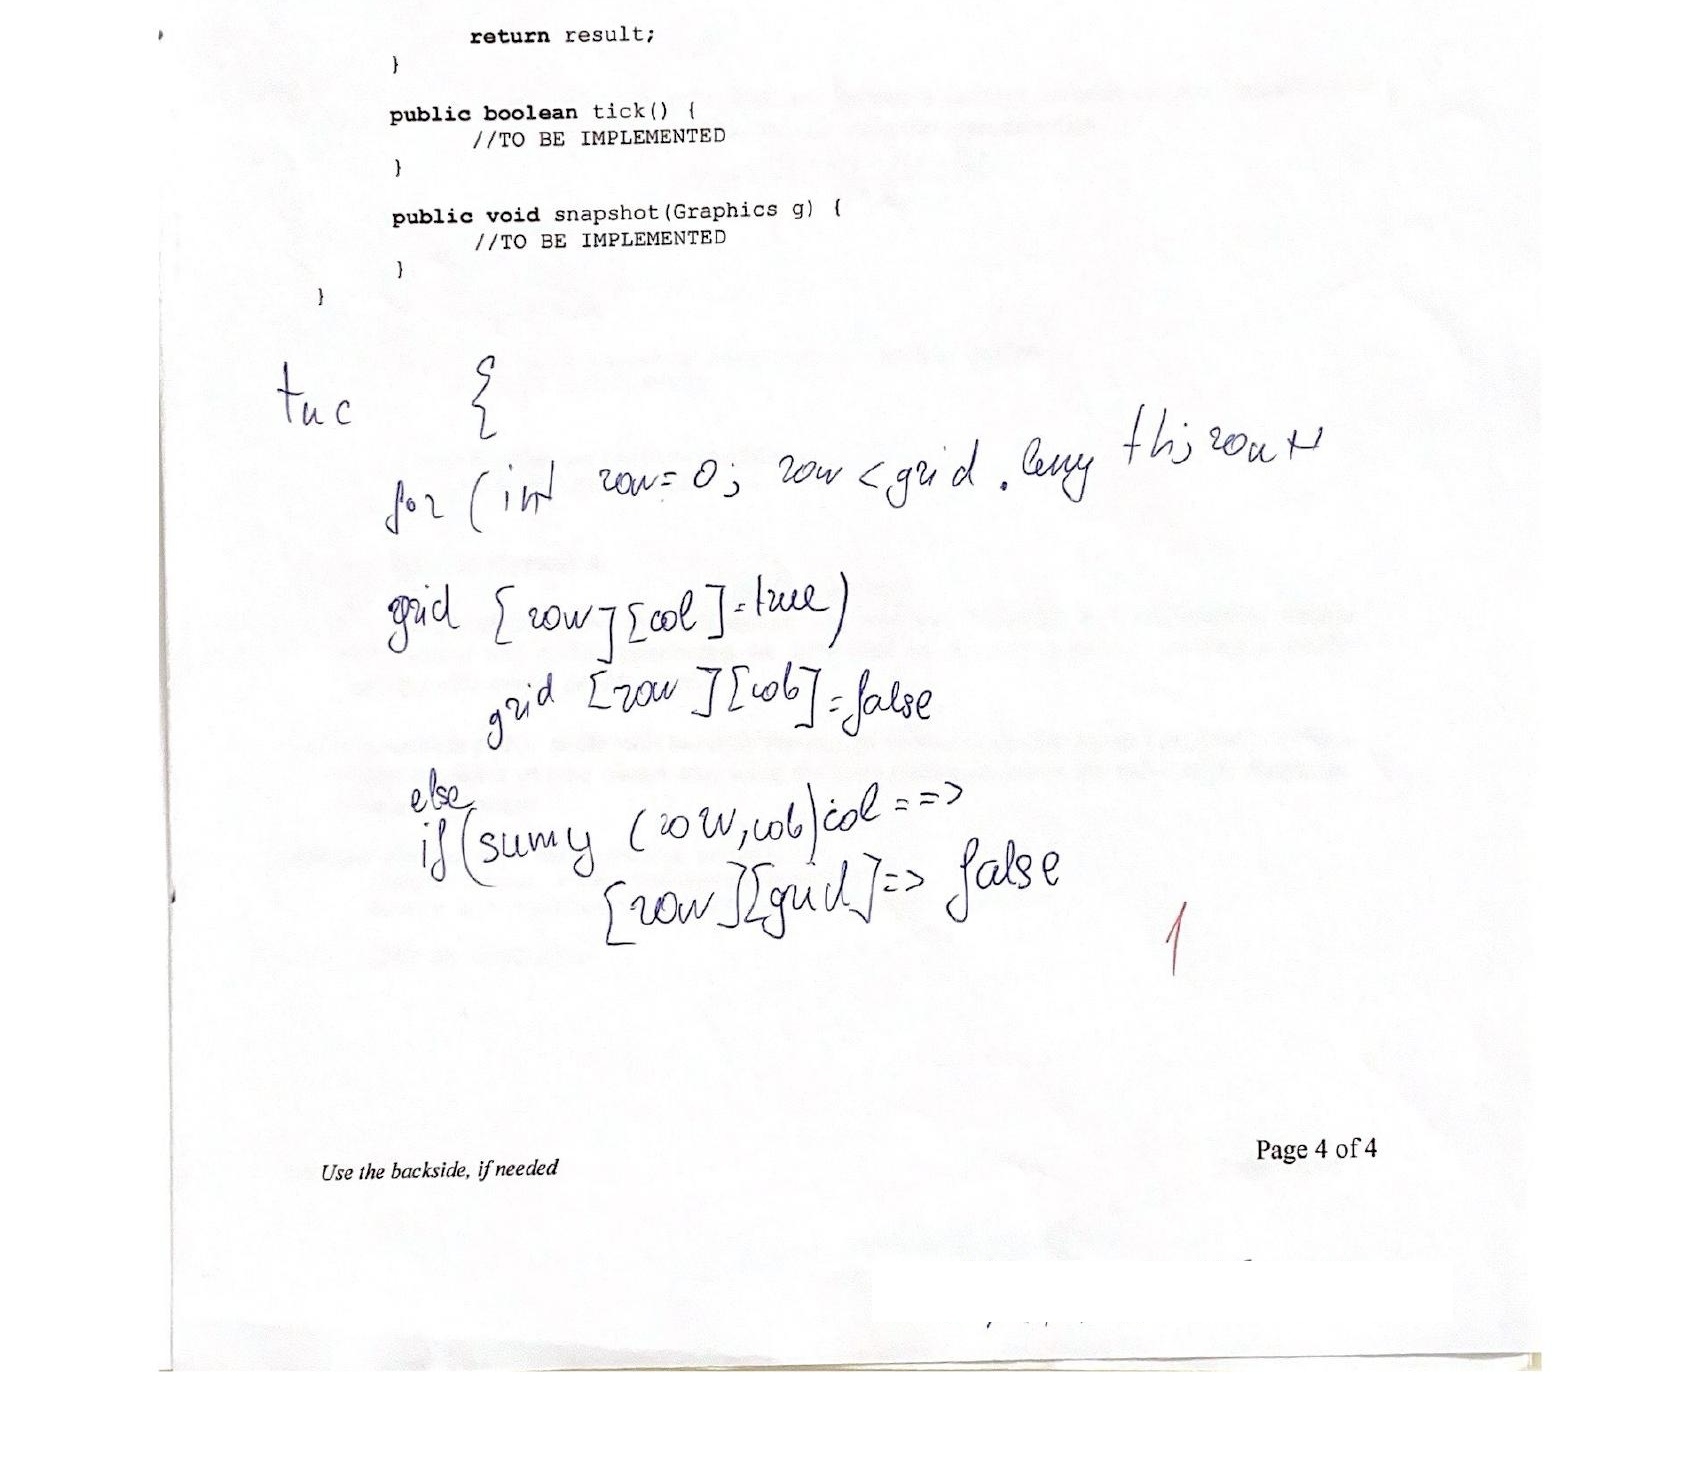 return result;
}
public boolean tick() {
//TO BE IMPLEMENTED
}
public void snapshot(Graphics g) {
//TO BE IMPLEMENTED
}
}
{
for (int row=0; row < grid .
grid [row][col]=true)
grid [row][col]=false
else
if(sumy (row,col)col ==>
[row][grid]=> false
1
Use the backside, if needed
Page 4 of 4